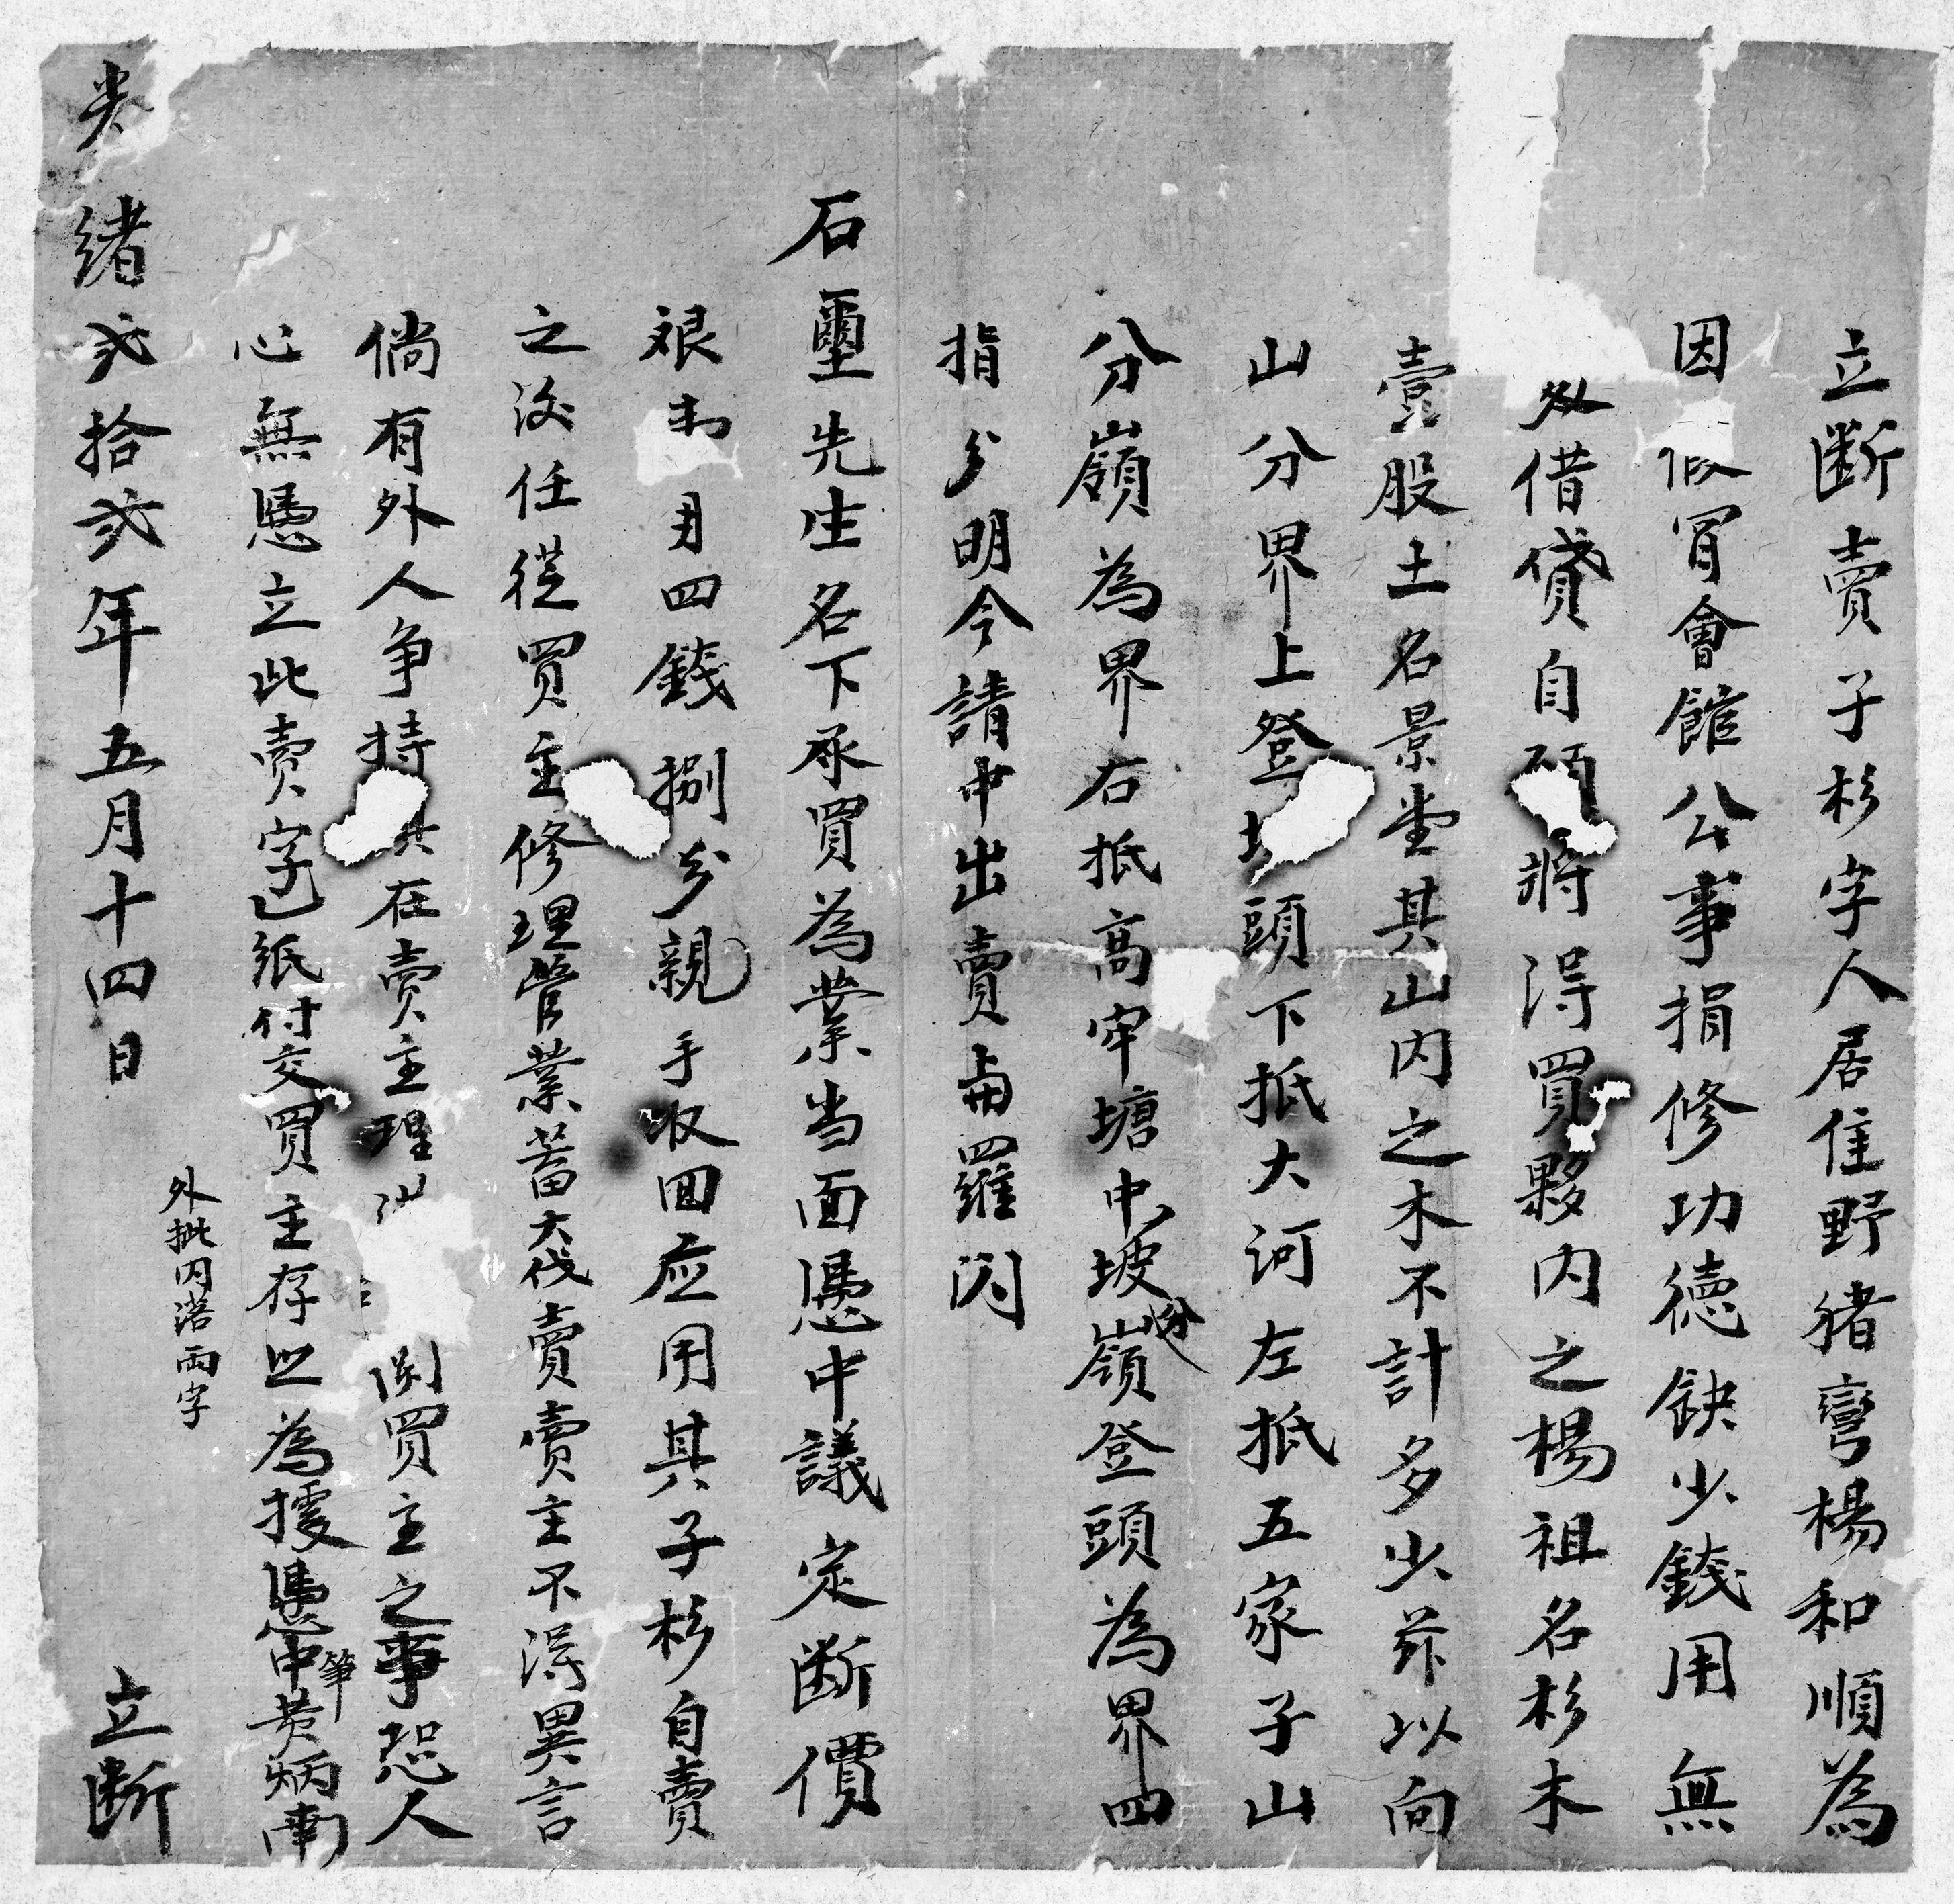 立断賣子杉字人居住野猪彎楊和順為
因 假冒會館公事捐修功德缺少錢用無
处借貸自 將得買夥内之楊祖名杉木
壹股土名景堂其山内之木不計多少并以向
山分界上登 頭下抵大河左抵五家子山
分嶺為界右抵高牢塘中坡分嶺登頭為界四
指分明今請中出賣与羅内
石璽先生名下承買為業当面憑中議定断價
艮 四錢捌分親手收囬应用其子杉自賣
之後任從買主修理管業蓄大伐賣賣主不得異言
倘有外人争持 在賣主理 買主之事恐人
心無憑立此賣字乙紙付交買主存照為據憑中筆黄炳南
外批内落兩字
光緒弍拾弍年五月十四日 立断